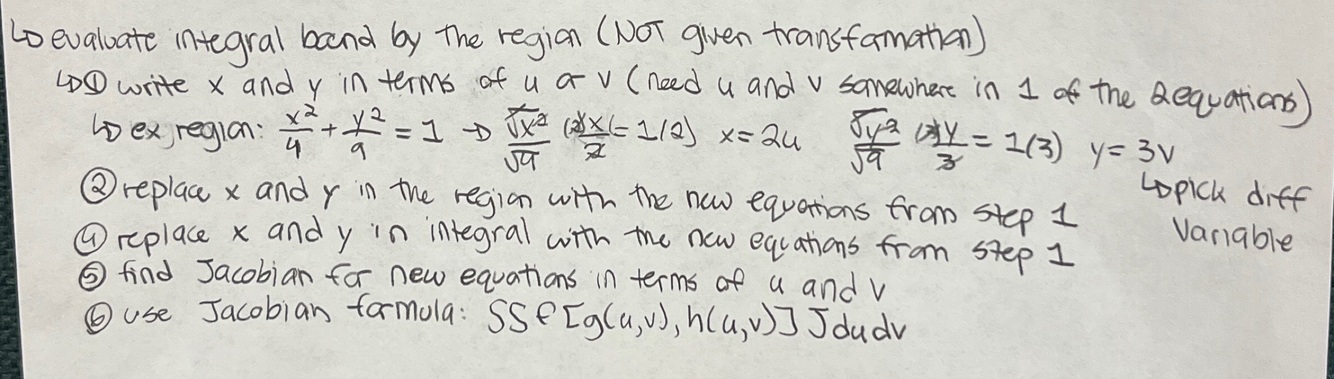 ↳ evaluate integral band by the region (NOT given transformation)
↳① write x and y in terms of u or v (need u and v somewhere in 1 of the 2 equations)
↳ ex region: x²/4 + y²/9 = 1 → √x²/√9 (2)x/2 = 1(2) x = 2u √y²/√9 (3)y/3 = 1(3) y = 3v
↳ pick diff variable
② replace x and y in the region with the new equations from step 1
④ replace x and y in integral with the new equations from step 1
⑤ find Jacobian for new equations in terms of u and v
⑥ use Jacobian formula: SSf[g(u,v), h(u,v)] J du dv